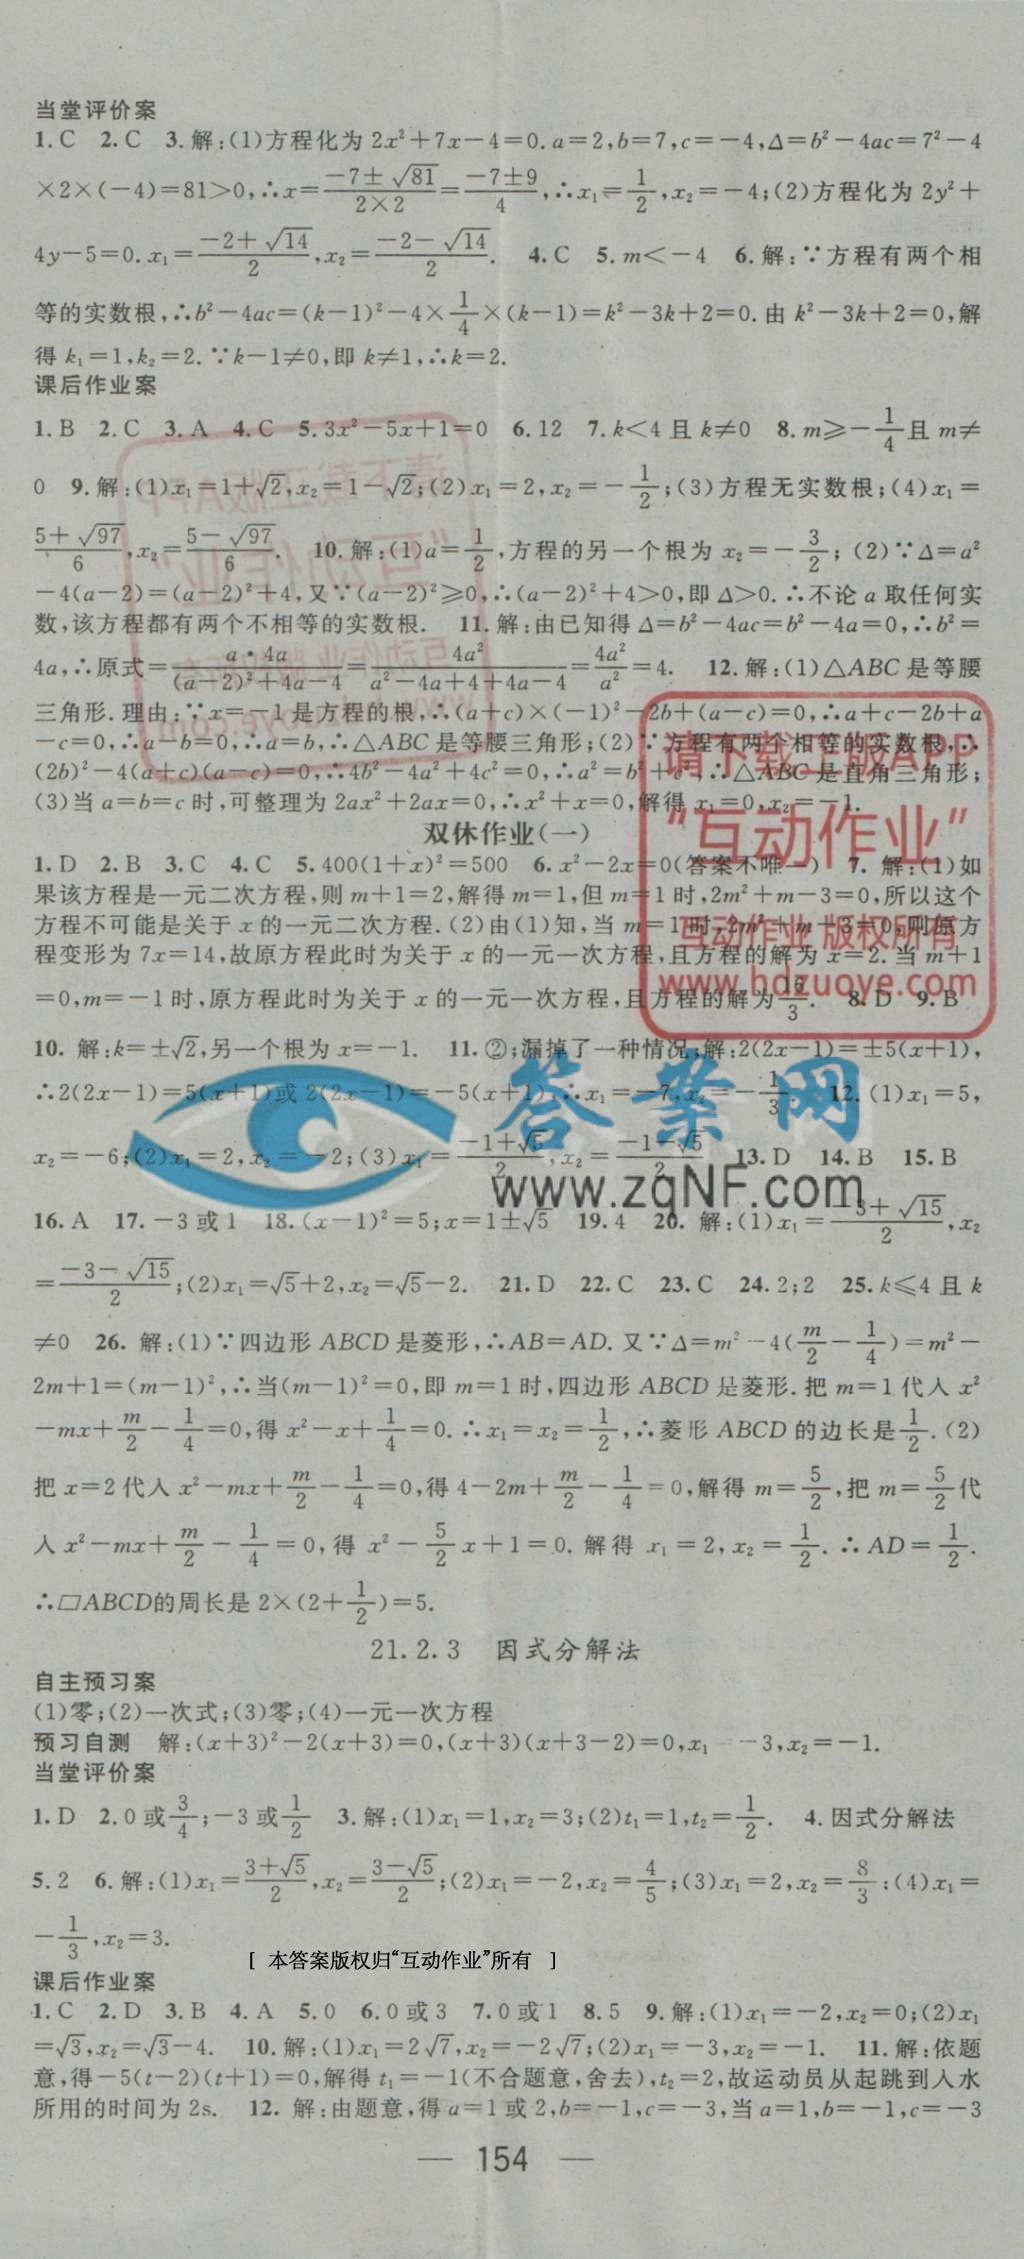 当堂评价案
1.C 2.C 3.解:(1)方程化为 2x²+7x-4=0.a=2,b=7,c=-4,Δ=b²-4ac=7²-4
×2×(-4)=81>0,∴x=(-7±√81)/(2×2)=(-7±9)/4,∴x₁=1/2,x₂=-4;(2)方程化为 2y²+
4y-5=0.x₁=(-2+√14)/2,x₂=(-2-√14)/2. 4.C 5.m<-4 6.解:∵方程有两个相
等的实数根,∴b²-4ac=(k-1)²-4×1/4×(k-1)=k²-3k+2=0.由 k²-3k+2=0,解
得 k₁=1,k₂=2.∵k-1≠0,即 k≠1,∴k=2.
课后作业案
1.B 2.C 3.A 4.C 5.3x²-5x+1=0 6.12 7.k<4 且 k≠0 8.m≥-1/4且 m≠
0 9.解:(1)x₁=1+√2,x₂=1-√2;(2)x₁=2,x₂=-1/2;(3)方程无实数根;(4)x₁=
(5+√97)/6,x₂=(5-√97)/6. 10.解:(1)a=1/2,方程的另一个根为 x₂=-3/2;(2)∵Δ=a²
-4(a-2)=(a-2)²+4,又∵(a-2)²≥0,∴(a-2)²+4>0,即 Δ>0.∴不论 a 取任何实
数,该方程都有两个不相等的实数根. 11.解:由已知得 Δ=b²-4ac=b²-4a=0,∴b²=
4a,∴原式=(a·4a)/((a-2)²+4a-4)=4a²/(a²-4a+4+4a-4)=4a²/a²=4. 12.解:(1)△ABC 是等腰
三角形.理由:∵x=-1 是方程的根,∴(a+c)×(-1)²-2b+(a-c)=0,∴a+c-2b+a
-c=0,∴a-b=0,∴a=b,∴△ABC 是等腰三角形;(2)∵方程有两个相等的实数根,∴
(2b)²-4(a+c)(a-c)=0,∴4b²-4a²+4c²=0,∴a²=b²+c²,∴△ABC 是直角三角形;
(3)当 a=b=c 时,可整理为 2ax²+2ax=0,∴x²+x=0,解得 x₁=0,x₂=-1.
双休作业(一)
1.D 2.B 3.C 4.C 5.400(1+x)²=500 6.x²-2x=0(答案不唯一) 7.解:(1)如
果该方程是一元二次方程,则 m+1=2,解得 m=1,但 m=1 时,2m²+m-3=0,所以这个
方程不可能是关于 x 的一元二次方程.(2)由(1)知,当 m=1 时,2m²+m-3=0,则原方
程变形为 7x=14,故原方程此时为关于 x 的一元一次方程,且方程的解为 x=2.当 m+1
=0,m=-1 时,原方程此时为关于 x 的一元一次方程,且方程的解为16/3. 8.D 9.B
10.解:k=±√2,另一个根为 x=-1. 11.②;漏掉了一种情况;解:2(2x-1)=±5(x+1),
∴2(2x-1)=5(x+1)或 2(2x-1)=-5(x+1),∴x₁=-7,x₂=-1/3. 12.(1)x₁=5,
x₂=-6;(2)x₁=2,x₂=-2;(3)x₁=(-1+√5)/2,x₂=(-1-√5)/2 13.D 14.B 15.B
16.A 17.-3 或 1 18.(x-1)²=5;x=1±√5 19.4 20.解:(1)x₁=(-3+√15)/2,x₂
=(-3-√15)/2;(2)x₁=√5+2,x₂=√5-2. 21.D 22.C 23.C 24.2;2 25.k≤4 且 k
≠0 26.解:(1)∵四边形 ABCD 是菱形,∴AB=AD.又∵Δ=m²-4(m/2-1/4)=m²-
2m+1=(m-1)²,∴当(m-1)²=0,即 m=1 时,四边形 ABCD 是菱形.把 m=1 代入 x²
-mx+m/2-1/4=0,得 x²-x+1/4=0.∴x₁=x₂=1/2,∴菱形 ABCD 的边长是1/2.(2)
把 x=2 代入 x²-mx+m/2-1/4=0,得 4-2m+m/2-1/4=0,解得 m=5/2,把 m=5/2代
入 x²-mx+m/2-1/4=0,得 x²-5/2x+1=0.解得 x₁=2,x₂=1/2.∴AD=1/2.
∴□ABCD的周长是 2×(2+1/2)=5.
21.2.3 因式分解法
自主预习案
(1)零;(2)一次式;(3)零;(4)一元一次方程
预习自测 解:(x+3)²-2(x+3)=0,(x+3)(x+3-2)=0,x₁ -3,x₂=-1.
当堂评价案
1.D 2.0 或3/4;-3 或1/2 3.解:(1)x₁=1,x₂=3;(2)t₁=1,t₂=1/2. 4.因式分解法
5.2 6.解:(1)x₁=(3+√5)/2,x₂=(3-√5)/2;(2)x₁=-2,x₂=4/5;(3)x₁=2,x₂=8/3;(4)x₁=
-1/3,x₂=3.
[ 本答案版权归“互动作业”所有 ]
课后作业案
1.C 2.D 3.B 4.A 5.0 6.0 或 3 7.0 或 1 8.5 9.解:(1)x₁=-2,x₂=0;(2)x₁
=√3,x₂=√3-4. 10.解:(1)x₁=2√7,x₂=-2√7;(2)x₁=-3,x₂=-1. 11.解:依题
意,得-5(t-2)(t+1)=0,解得 t₁=-1(不合题意,舍去),t₂=2,故运动员从起跳到入水
所用的时间为 2s. 12.解:由题意,得 a=1 或 2,b=-1,c=-3,当 a=1,b=-1,c=-3
— 154 —
请下载正版APP
“互动作业”
互动作业 版权所有
www.hdzuoye.com
答案网
www.zqNF.com